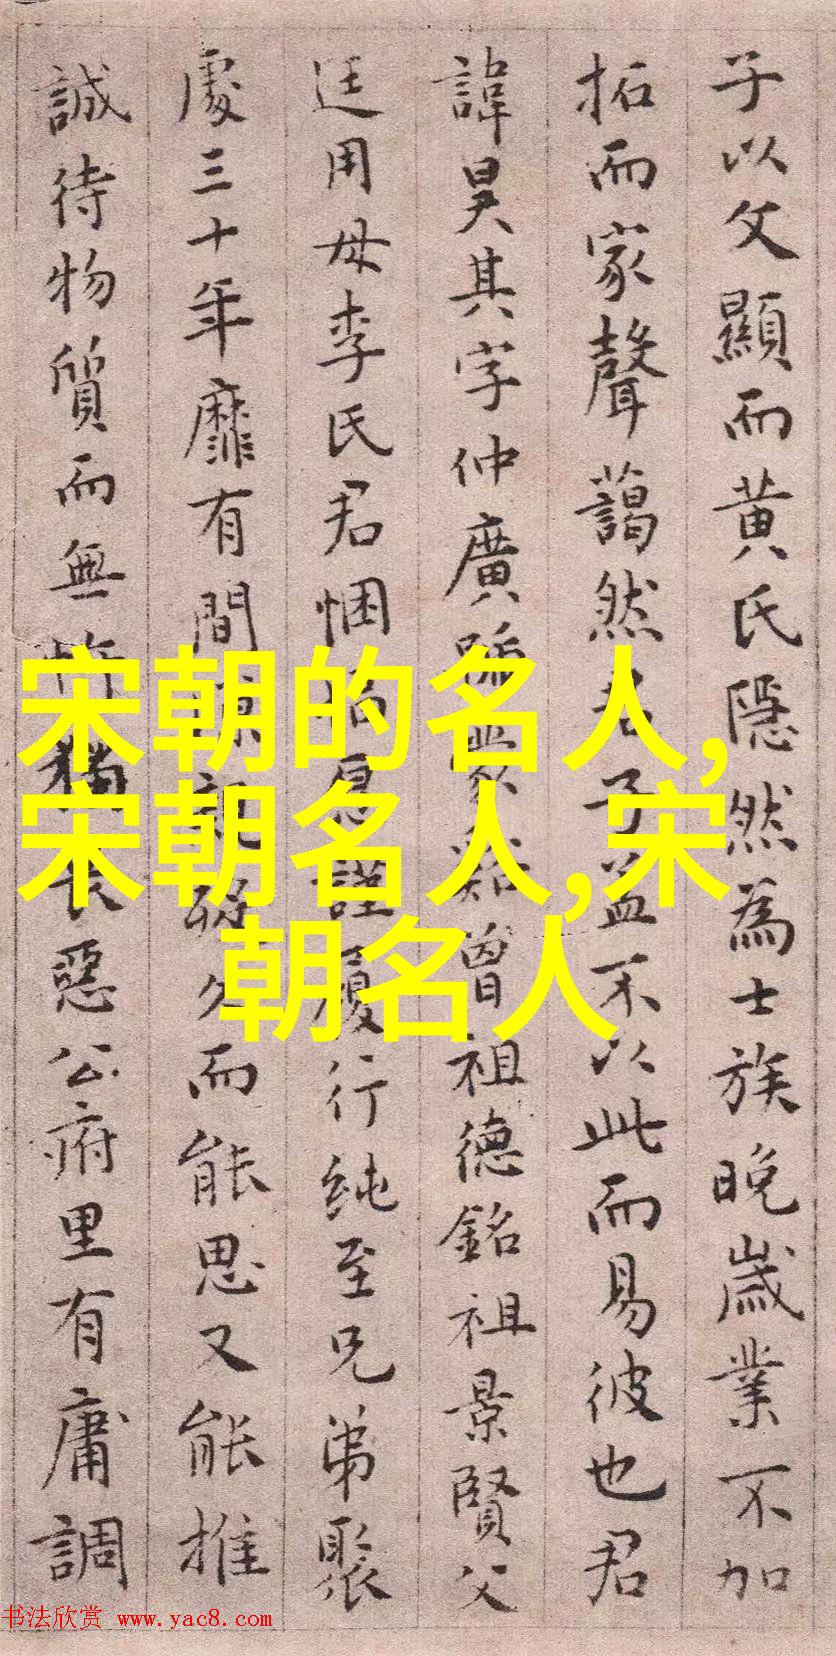 子以父顯而黄氏隠然為士族晚歲業不加
拓而家聲藹然君子益不以此而易彼也君
諱昊其字仲廣曾祖德銘祖景賢父
廷用母李氏君悃愊謹履行純至兄弟聚
處三十年靡有間而能思又能推
誠待物質而無長惡公府里有庸調
宋朝的名人,
宋朝名人,宋
朝名人
书法欣赏 www.yac8.com